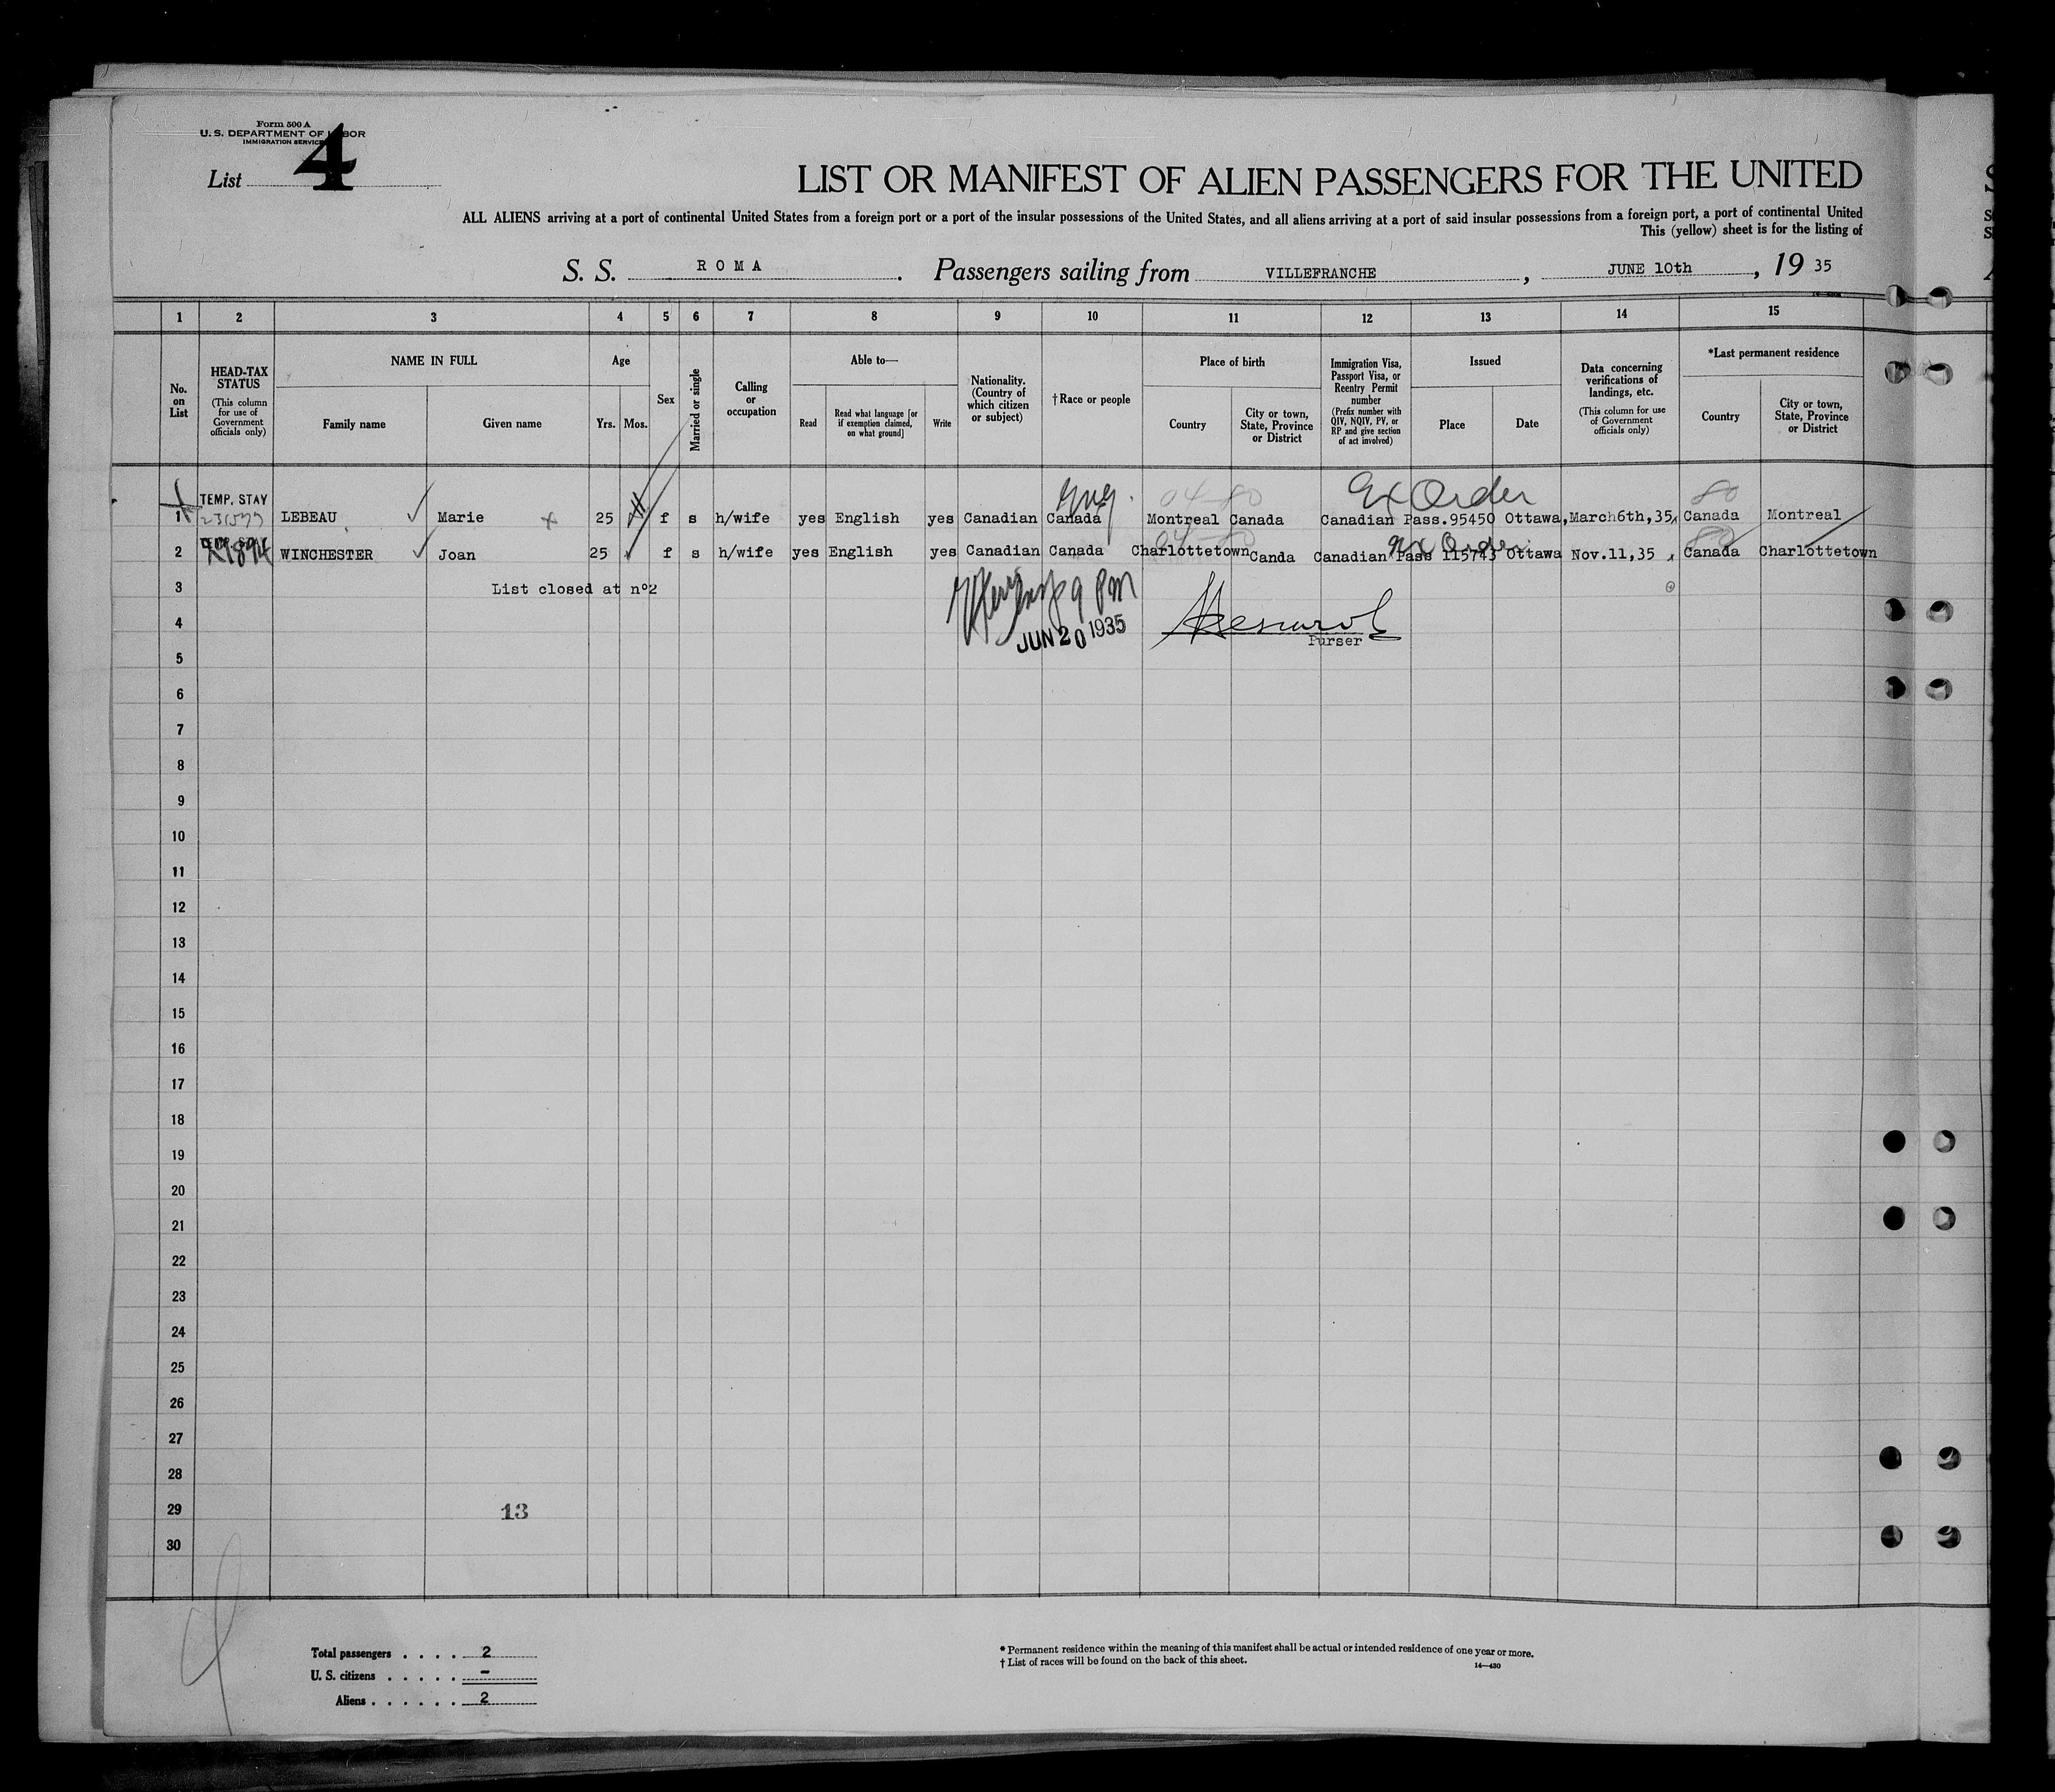 Form 500 A
U. S. DEPARTMENT OF LABOR
IMMIGRATION SERVICE
List 4
LIST OR MANIFEST OF ALIEN PASSENGERS FOR THE UNITED
ALL ALIENS arriving at a port of continental United States from a foreign port or a port of the insular possessions of the United States, and all aliens arriving at a port of said insular possessions from a foreign port, a port of continental United
This (yellow) sheet is for the listing of
S. S. ROMA. Passengers sailing from VILLEFRANCHE, JUNE 10th, 19 35
1 2 3 4 5 6 7 8 9 10 11 12 13 14 15
No. on List
HEAD-TAX STATUS
(This column for use of Government officials only)
NAME IN FULL
Family name Given name
Age
Yrs. Mos.
Sex
Married or single
Calling or occupation
Able to—
Read
Read what language [or if exemption claimed, on what ground]
Write
Nationality. (Country of which citizen or subject)
†Race or people
Place of birth
Country
City or town, State, Province or District
Immigration Visa, Passport Visa, or Reentry Permit number
(Prefix number with QIV, NQIV, PV, or RP and give section of act involved)
Issued
Place Date
Data concerning verifications of landings, etc.
(This column for use of Government officials only)
*Last permanent residence
Country
City or town, State, Province or District
TEMP. STAY 04-80 Ex Order 80
1 LEBEAU Marie 25 f s h/wife yes English yes Canadian Canada Montreal Canada Canadian Pass.95450 Ottawa, March6th,35 Canada Montreal
04-80 Ex Order 80
2 WINCHESTER Joan 25 f s h/wife yes English yes Canadian Canada Charlottetown Canda Canadian Pass 115743 Ottawa Nov.11,35 Canada Charlottetown
3 List closed at nº2
9 PM
4 JUN 20 1935
Purser
5
6
7
8
9
10
11
12
13
14
15
16
17
18
19
20
21
22
23
24
25
26
27
28
29 13
30
Total passengers . . . . 2
U. S. citizens . . . . . –
Aliens . . . . . . 2
* Permanent residence within the meaning of this manifest shall be actual or intended residence of one year or more.
† List of races will be found on the back of this sheet.
14—430